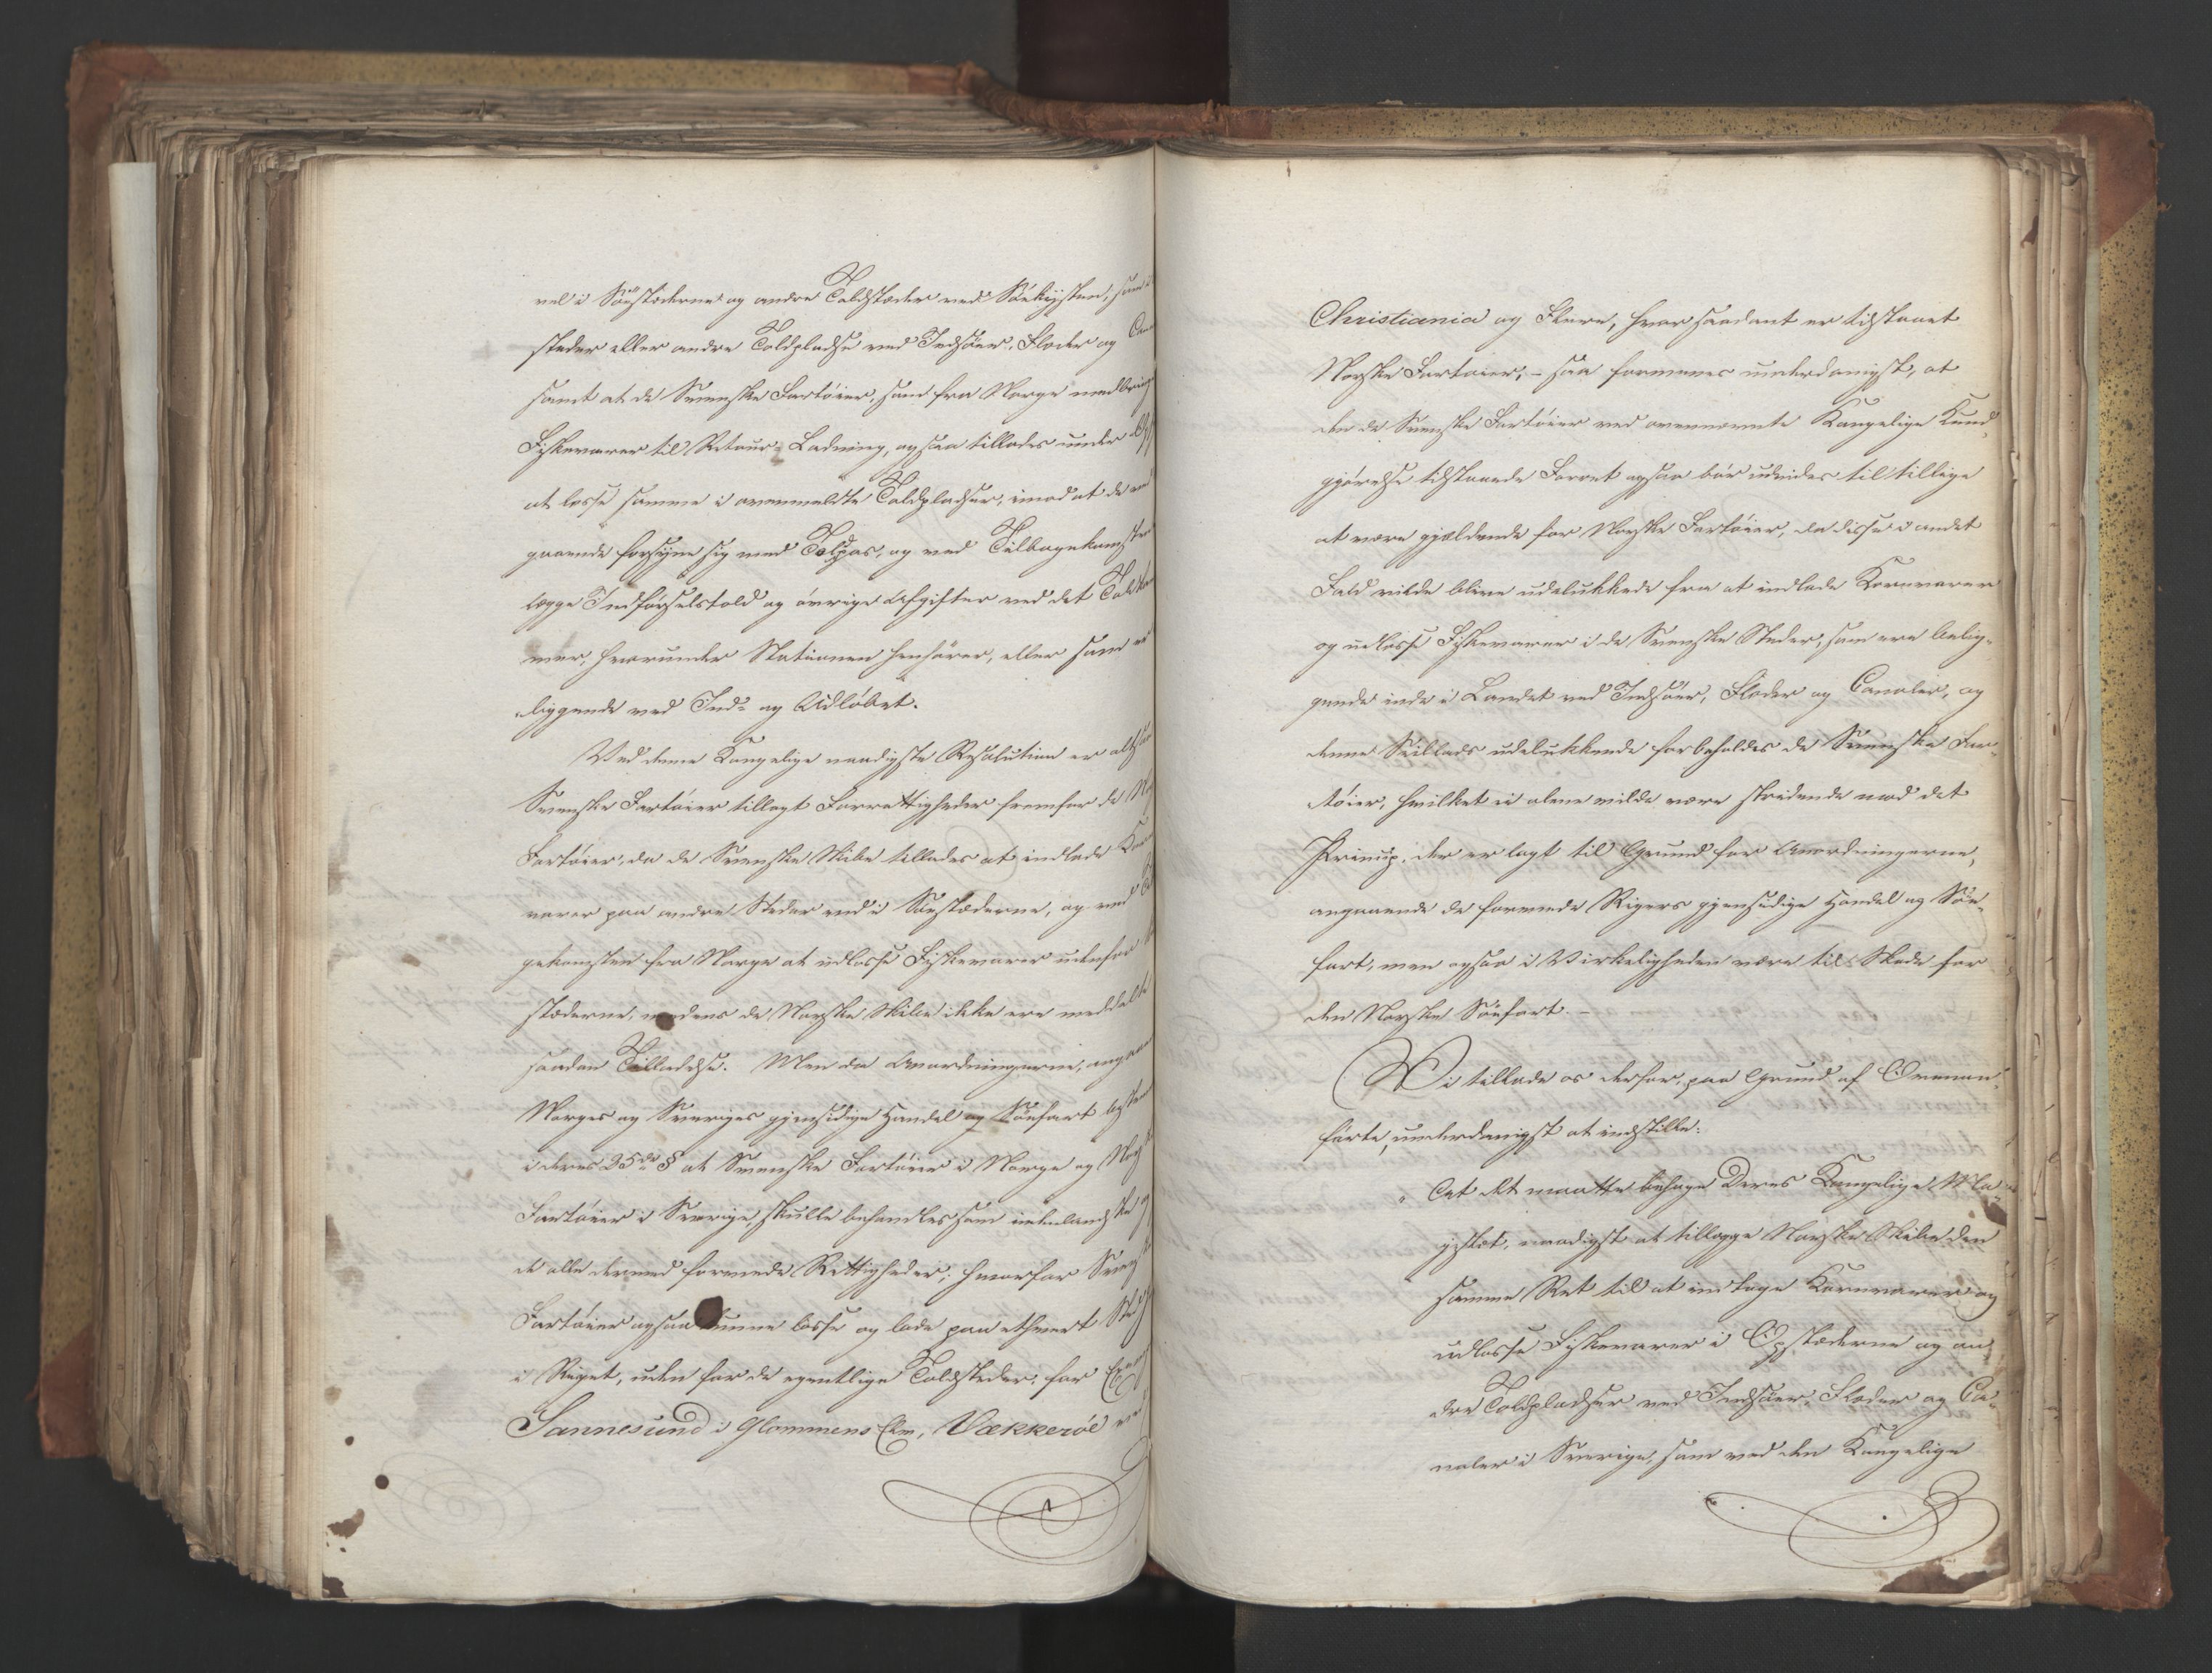 vel i Søestæderne og andre Toldstæder ved Søekysten, som i
steder eller andre Toldpladse ved Indsøer, Floder og Can
samt at de Svenske Fartøier, som fra Norge medbringe
Fiskevarer til Retour-Ladning, ogsaa tillades under
at losse samme i ovenmeldte Toldpladser, imod at de ved
gaaende forsyne sig med Tolpas, og ved Tilbagekomsten
lægge Indførselstold og øvrige Afgifter ved det Toldka
mer, hvorunder Stationen henhører, eller som er
liggende ved Ind- og Udløbet.
Ved denne Kongelige naadigste Resolution er altsaa
Svenske Fartøier tillagt Forrettigheder fremfor de No
Fartøier, da de Svenske Skibe tillades at indlade Korn
varer paa andre Steder end i Søestæderne, og ved Til
gekomsten fra Norge at udlosse Fiskevarer udenfor
stæderne, medens de Norske Skibe ikke ere meddelte
saadan Tilladelse. Men da Anordningerne, angaaen
Norges og Sveriges gjensidige Handel og Søefart
i deres 25de § at Svenske Fartøier i Norge og Norsk
Fartøier i Sverige, skulle behandles som indenlandske og
de alle dermed forenede Rettigheder; hvorfor Svensk
Fartøier ogsaa kunne losse og lade paa ethvert Sted
i Riget, uden for de egentlige Toldsteder, for Exemp
Sannesund i Glommens Elv, Vækkeröe ved
Christiania og Flere, hvor saadant er tilstaaet
Norske Fartøier; – saa formenes underdanigst, at
den de Svenske Fartøier ved ovennævnte Kongelige Kund-
gjørelse tilstaaede Forret ogsaa bør udvides til tillige
at være gjældende for Norske Fartøier, da disse i andet
Fald vilde blive udelukkede fra at indlade Kornvarer
og udlosse Fiskevarer i de Svenske Steder, som ere belig-
gende inde i Landet ved Indsøer, Floder og Canaler, og
denne Seillads udelukkende forbeholdes de Svenske Far-
tøier, hvilket ei alene vilde være stridende mod det
Princip, der er lagt til Grund for Anordningerne,
angaaende de forenede Rigers gjensidige Handel og Søe-
fart, men ogsaa i Virkeligheden være til Skade for
den Norske Søefart. –
Vi tillade os derfor, paa Grund af Ovenan-
førte, underdanigst at indstille:
„ At det maatte behage Deres Kongelige Ma-
jestæt, naadigst at tillægge Norske Skibe den
samme Ret til at indtage Kornvarer og
udlosse Fiskevarer i Opstæderne og an-
dre Toldpladser ved Indsøer, Floder og Ca-
naler i Sverige, som ved den Kongelige